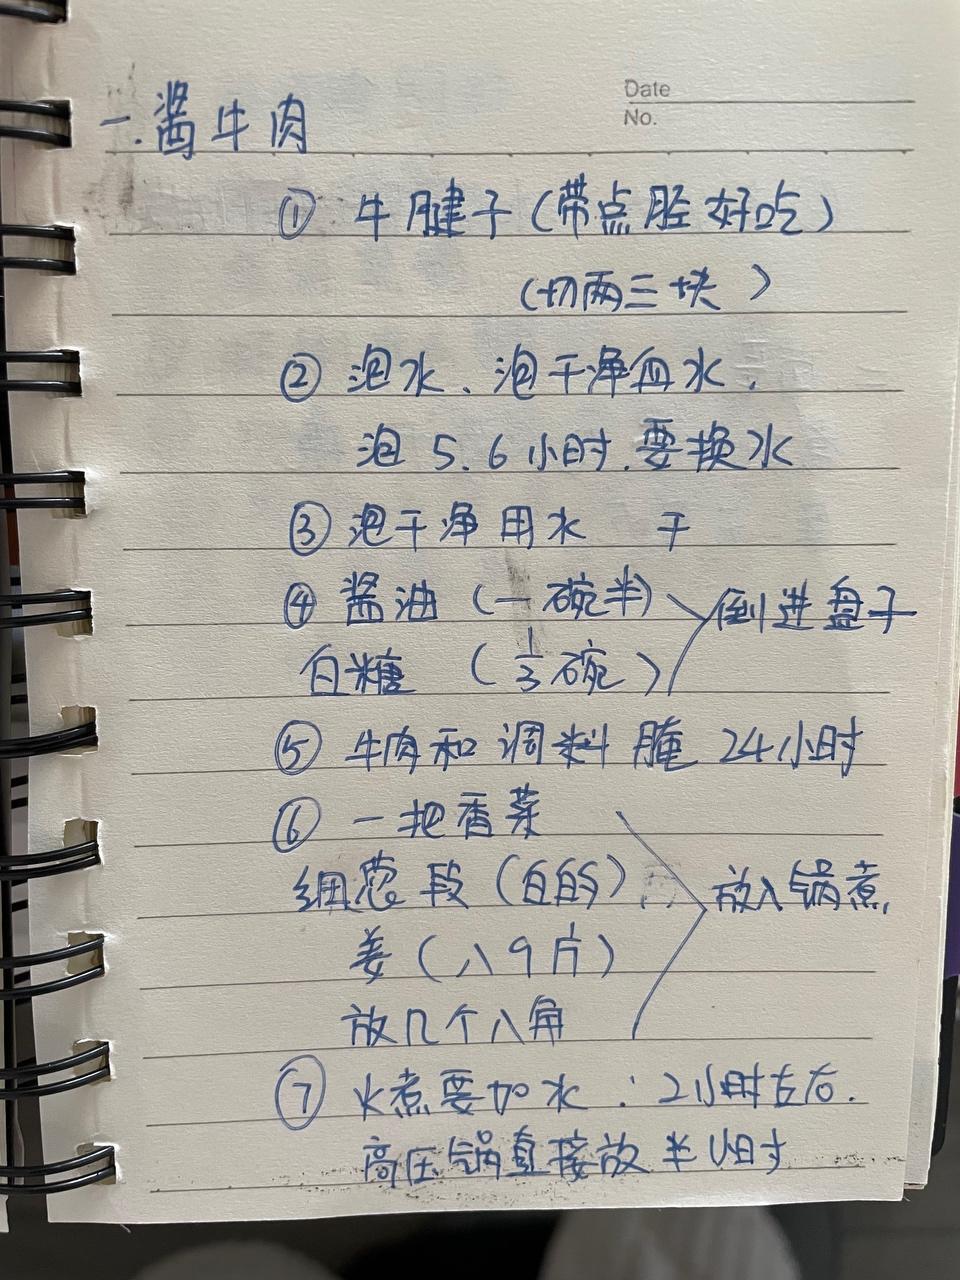 Date
No.
一.酱牛肉
① 牛腱子(带点胫好吃)
(切两三块)
② 泡水、泡干净血水.
泡5.6小时.要换水
③ 泡干净用水 干
④ 酱油(一碗半) 倒进盘子
白糖(1/3碗)
⑤ 牛肉和调料腌 24小时
⑥ 一把香菜
细葱段(白的) 放入锅煮
姜(八9片)
放几个八角
⑦ 火煮要加水:2小时左右.
高压锅直接放半小时